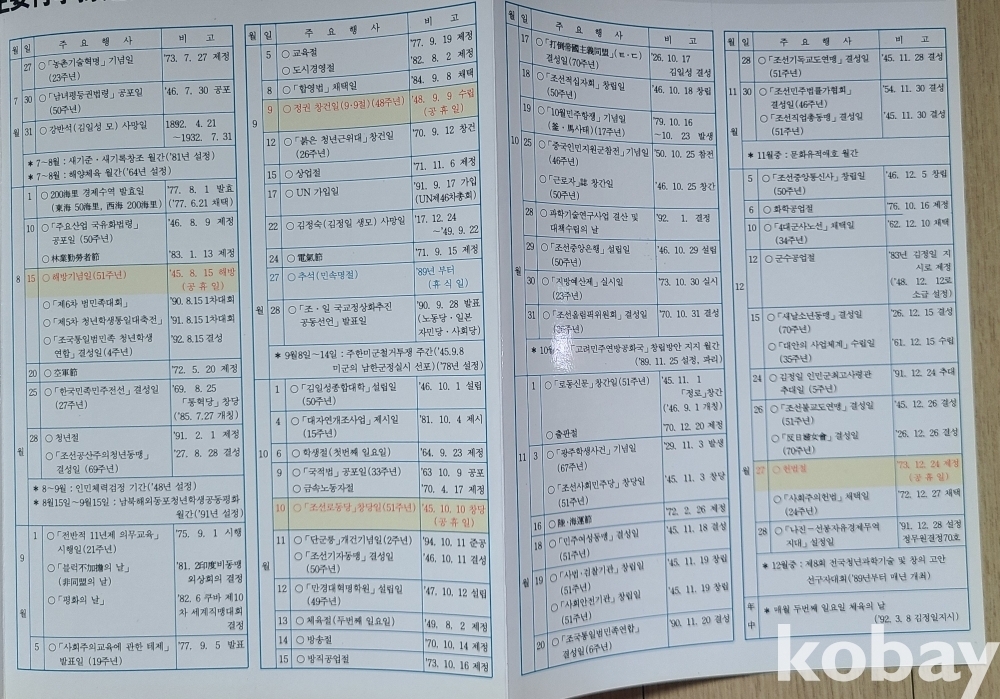 월 일 주요행사 비고
27 ○「농촌기술혁명」기념일 '73. 7. 27 제정
(23주년)
7 30 ○「남녀평등권법령」공포일 '46. 7. 30 공포
(50주년)
월 31 ○ 강반석(김일성 모) 사망일 1892. 4. 21
~1932. 7. 31
* 7~8월 : 새기준·새기록창조 월간('81년 설정)
* 7~8월 : 해양체육 월간('64년 설정)
1 ○ 200海里 경제수역 발효일 '77. 8. 1 발효
(東海 50海里, 西海 200海里) ('77. 6.21 채택)
10 ○「주요산업 국유화법령」 '46. 8. 9 제정
공포일 (50주년)
○ 林業勤勞者節 '83. 1. 13 제정
8 15 ○ 해방기념일(51주년) '45. 8. 15 해방
(공휴일)
○「제6차 범민족대회」 '90. 8.15 1차대회
○「제5차 청년학생통일대축전」 '91. 8.15 1차대회
○「조국통일범민족 청년학생 '92. 8.15 결성
연합」결성일(4주년)
20 ○ 空軍節 '72. 5. 20 제정
25 ○「한국민족민주전선」결성일 '69. 8. 25
(27주년) 「통혁당」창당
('85. 7.27 개칭)
28 ○ 청년절 '91. 2. 1 제정
월 ○「조선공산주의청년동맹」 '27. 8. 28 결성
결성일 (69주년)
* 8~9월 : 인민체력검정 기간('48년 설정)
* 8월15일~9월15일 : 남북해외동포청년학생공동평화
월간('91년 설정)
1 ○「전반적 11년제 의무교육」 '75. 9. 1 시행
시행일(21주년)
9 ○「블럭不加擔의 날」 '81. 2印度비동맹
(非同盟의 날) 외상회의 결정
○「평화의 날」 '82. 6 쿠바 제10
차 세계직맹대회
월 결정
5 ○「사회주의교육에 관한 테제」 '77. 9. 5 발표
발표일 (19주년)
월 일 주요행사 비고
5 ○ 교육절 '77. 9. 19 제정
○ 도시경영절 '82. 8. 2 제정
8 ○「합영법」채택일 '84. 9. 8 채택
9 ○ 정권 창건일(9·9절)(48주년) '48. 9. 9 수립
9 (공휴일)
12 ○「붉은 청년근위대」창건일 '70. 9. 12 창건
(26주년)
15 ○ 상업절 '71. 11. 6 제정
17 ○ UN 가입일 '91. 9. 17 가입
(UN제46차총회)
22 ○ 김정숙(김정일 생모) 사망일 '17. 12. 24
~'49. 9. 22
24 ○ 電氣節 '71. 9. 15 제정
27 ○ 추석(민속명절) '89년 부터
(휴식일)
월 28 ○「조·일 국교정상화추진 '90. 9. 28 발표
공동선언」발표일 (노동당·일본
자민당·사회당)
* 9월8일~14일 : 주한미군철거투쟁 주간('45.9.8
미군의 남한군정실시 선포)('78년 설정)
1 ○「김일성종합대학」설립일 '46. 10. 1 설립
(50주년)
4 ○「대자연개조사업」제시일 '81. 10. 4 제시
(15주년)
10 6 ○ 학생절(첫번째 일요일) '64. 9. 23 제정
9 ○「국적법」공포일(33주년) '63 10. 9 공포
○ 금속노동자절 '70. 4. 17 제정
10 ○「조선로동당」창당일(51주년) '45. 10. 10 창당
(공휴일)
11 ○「단군릉」개건기념일(2주년) '94. 10. 11 준공
○「조선기자동맹」결성일 '46. 10. 11 결성
(50주년)
12 ○「만경대혁명학원」설립일 '47. 10. 12 설립
월 (49주년)
13 ○ 체육절(두번째 일요일) '49. 8. 2 제정
14 ○ 방송절 '70. 10. 14 제정
15 ○ 방직공업절 '73. 10. 16 제정
월 일 주요행사 비고
17 ○「打倒帝國主義同盟」(ㅌ·ㄷ) '26. 10. 17
결성일(70주년) 김일성 결성
18 ○「조선적십자회」창립일 '46. 10. 18 창립
(50주년)
19 ○「10월민주항쟁」기념일 '79. 10. 16
(釜·馬사태)(17주년) ~10. 23 발생
10 25 ○「중국인민지원군참전」기념일 '50. 10. 25 참전
(46주년)
○「근로자」誌 창간일 '46. 10. 25 창간
(50주년)
28 ○ 과학기술연구사업 결산 및 '92. 1. 결정
대책수립의 날
29 ○「조선중앙은행」설립일 '46. 10. 29 설립
(50주년)
월 30 ○「지방예산제」실시일 '73. 10. 30 실시
(23주년)
31 ○「조선올림픽위원회」결성일 '70. 10. 31 결성
* 10월 「고려민주연방공화국」창립방안 지지 월간
('89. 11. 25 설정, 파리)
1 ○「로동신문」창간일(51주년) '45. 11. 1
「정로」창간
('46. 9. 1 개칭)
○ 출판절 '70. 12. 20 제정
11 3 ○「광주학생사건」기념일 '29. 11. 3 발생
(67주년)
○「조선사회민주당」창당일 '45. 11. 3 창당
(51주년)
16 ○ 陸·海運節 '72. 2. 26 제정
18 ○「민주여성동맹」결성일 '45. 11. 18 결성
(51주년)
월 19 ○「사법·검찰기관」창립일 '45. 11. 19 창립
(51주년)
○「사회안전기관」창립일 '45. 11. 19 창립
(51주년)
20 ○「조국통일범민족연합」 '90. 11. 20 결성
결성일(6주년)
월 일 주요행사 비고
28 ○「조선기독교도연맹」결성일 '45. 11. 28 결성
(51주년)
11 30 ○「조선민주법률가협회」 '54. 11. 30 결성
결성일(46주년)
○「조선직업총동맹」결성일 '45. 11. 30 결성
월 (51주년)
* 11월중 : 문화유적애호 월간
5 ○「조선중앙통신사」창립일 '46. 12. 5 창립
(50주년)
6 ○ 화학공업절 '76. 10. 16 제정
10 ○「4대군사노선」채택일 '62. 12. 10 채택
(34주년)
12 ○ 군수공업절 '83년 김정일 지
시로 제정
12 ('48. 12. 12로
소급 설정)
15 ○「새날소년동맹」결성일 '26. 12. 15 결성
(70주년)
○「대안의 사업체계」수립일 '61. 12. 15 수립
(35주년)
24 ○ 김정일 인민군최고사령관 '91. 12. 24 추대
추대일 (5주년)
26 ○「조선불교도연맹」결성일 '45. 12. 26 결성
(51주년)
○「反日婦女會」결성일 '26. 12. 26 결성
(70주년)
월 27 ○ 헌법절 '73. 12. 24 제정
(공휴일)
○「사회주의헌법」채택일 '72. 12. 27 채택
(24주년)
28 ○「나진-선봉자유경제무역 '91. 12. 28 설정
지대」설정일 정무원결정70호
* 12월중 : 제8회 전국청년과학기술 및 창의 고안
선구자대회('89년부터 매년 개최)
年 * 매월 두번째 일요일 체육의 날
中 ('92. 3. 8 김정일지시)
kobay